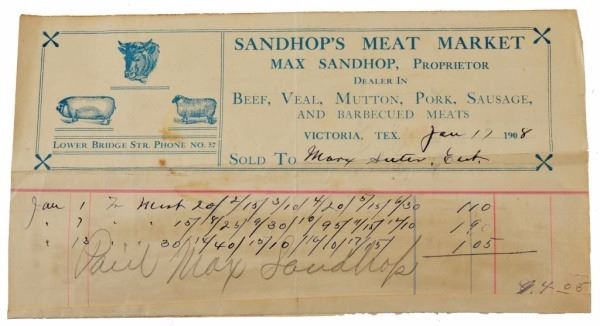 SANDHOP'S MEAT MARKET
MAX SANDHOP, PROPRIETOR
DEALER IN
BEEF, VEAL, MUTTON, PORK, SAUSAGE,
AND BARBECUED MEATS
LOWER BRIDGE STR. PHONE NO. 37
VICTORIA, TEX. Jan 17 1908
SOLD TO Marx
Jan 1 To Meat 20/ 2/15/ 3/10/ 4/20/ 5/15/ 6/30 1.10
" 7 " " 15/ 8/25/ 9/30/ 10/95/ 11/15/ 12/10 1.90
" 13 30/ 14/40/ 15/10/ 16/10/ 17/15/ 1.05
Paid Max Sandhop
4.05